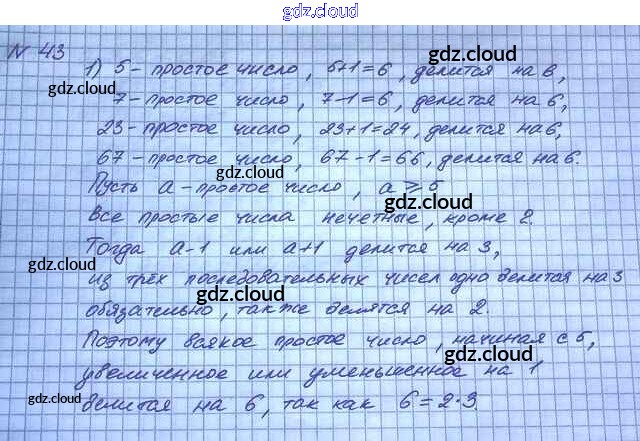 gdz.cloud
№ 43
gdz.cloud
1) 5 - простое число, 5+1=6, делится на 6,
gdz.cloud
7 - простое число, 7-1=6, делится на 6,
gdz.cloud
23 - простое число, 23+1=24, делится на 6,
gdz.cloud
67 - простое число, 67-1=66, делится на 6.
gdz.cloud
Пусть а - простое число, а ⩾ 5
gdz.cloud
Все простые числа нечётные, кроме 2.
gdz.cloud
Тогда а-1 или а+1 делится на 3,
gdz.cloud
из трёх последовательных чисел одно делится на 3
gdz.cloud
обязательно, также делятся на 2.
gdz.cloud
Поэтому всякое простое число, начиная с 5,
gdz.cloud
увеличенное или уменьшенное на 1
gdz.cloud
делится на 6, так как 6=2·3.
gdz.cloud